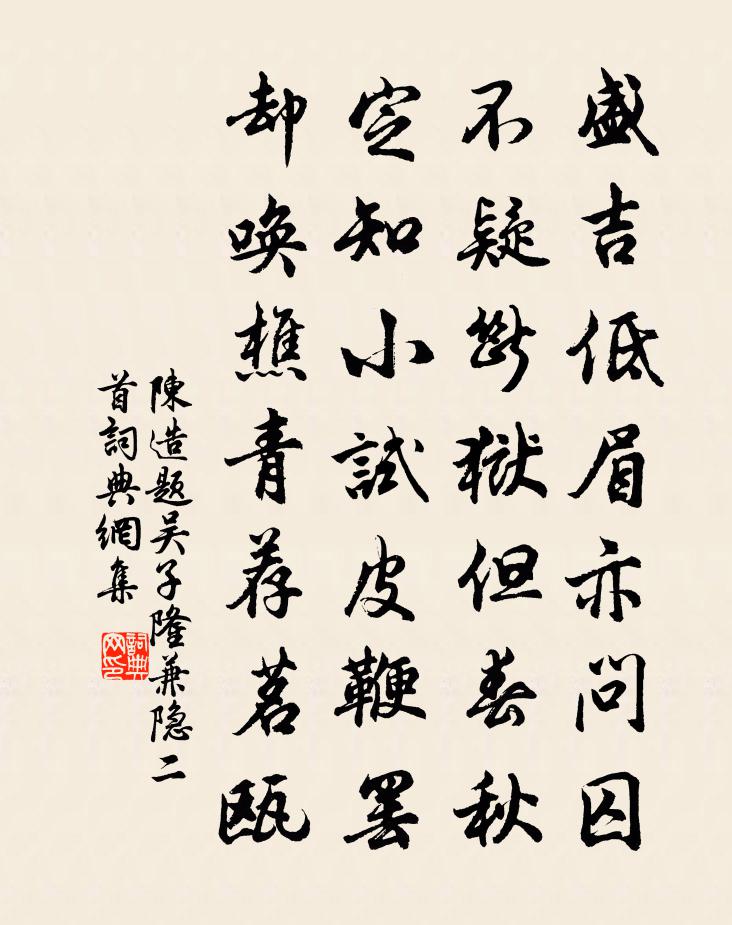 盛吉低眉亦问囚
不疑断狱但春秋
定知小試皮鞭罢
却唤樵青荐茗瓯
陳造題吴子隆兼隐二
首詞典網集
詞典
网印